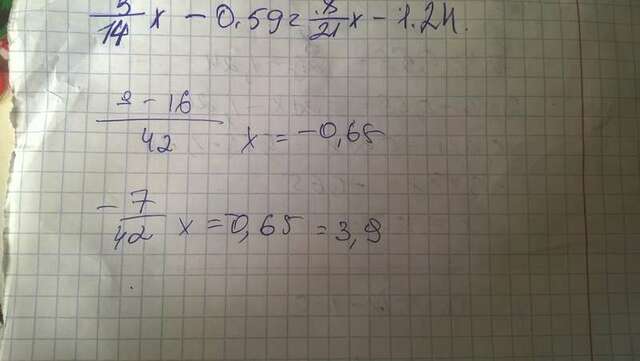 3/14 x - 0.59 = 8/21 x - 1.24.
9 - 16/42 x = -0,65
- 7/42 x = 0,65 = 3,9